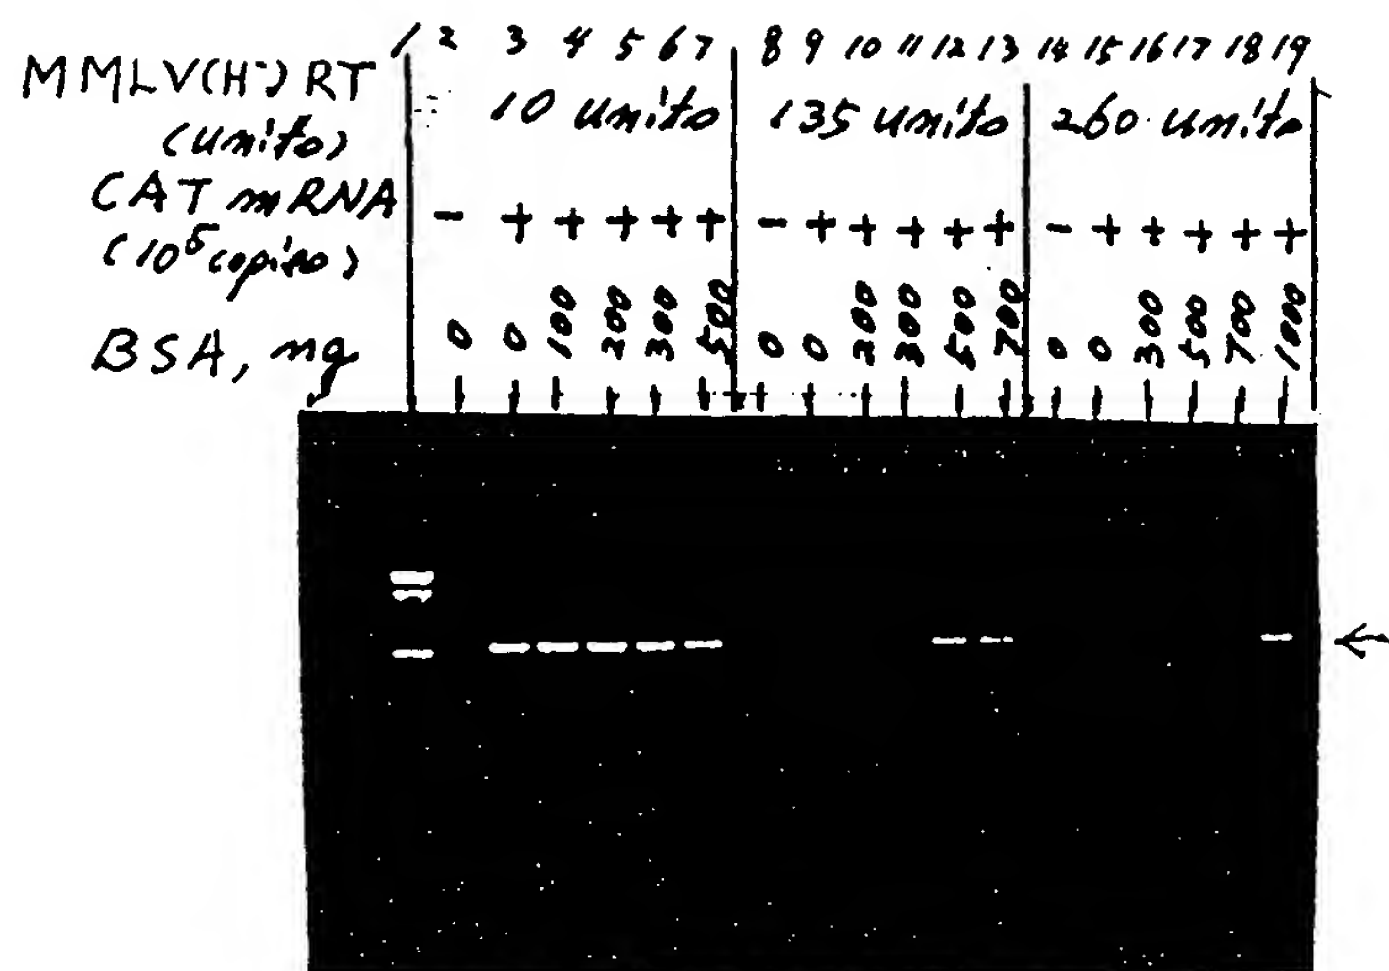 1 2 3 4 5 6 7 8 9 10 11 12 13 14 15 16 17 18 19
MMLV(H-) RT 10 units 135 units 260 units
(units)
CAT mRNA - + + + + + - + + + + + - + + + + +
(10^5 copies)
BSA, ng 0 0 100 200 300 500 0 0 200 300 500 700 0 0 300 500 700 1000